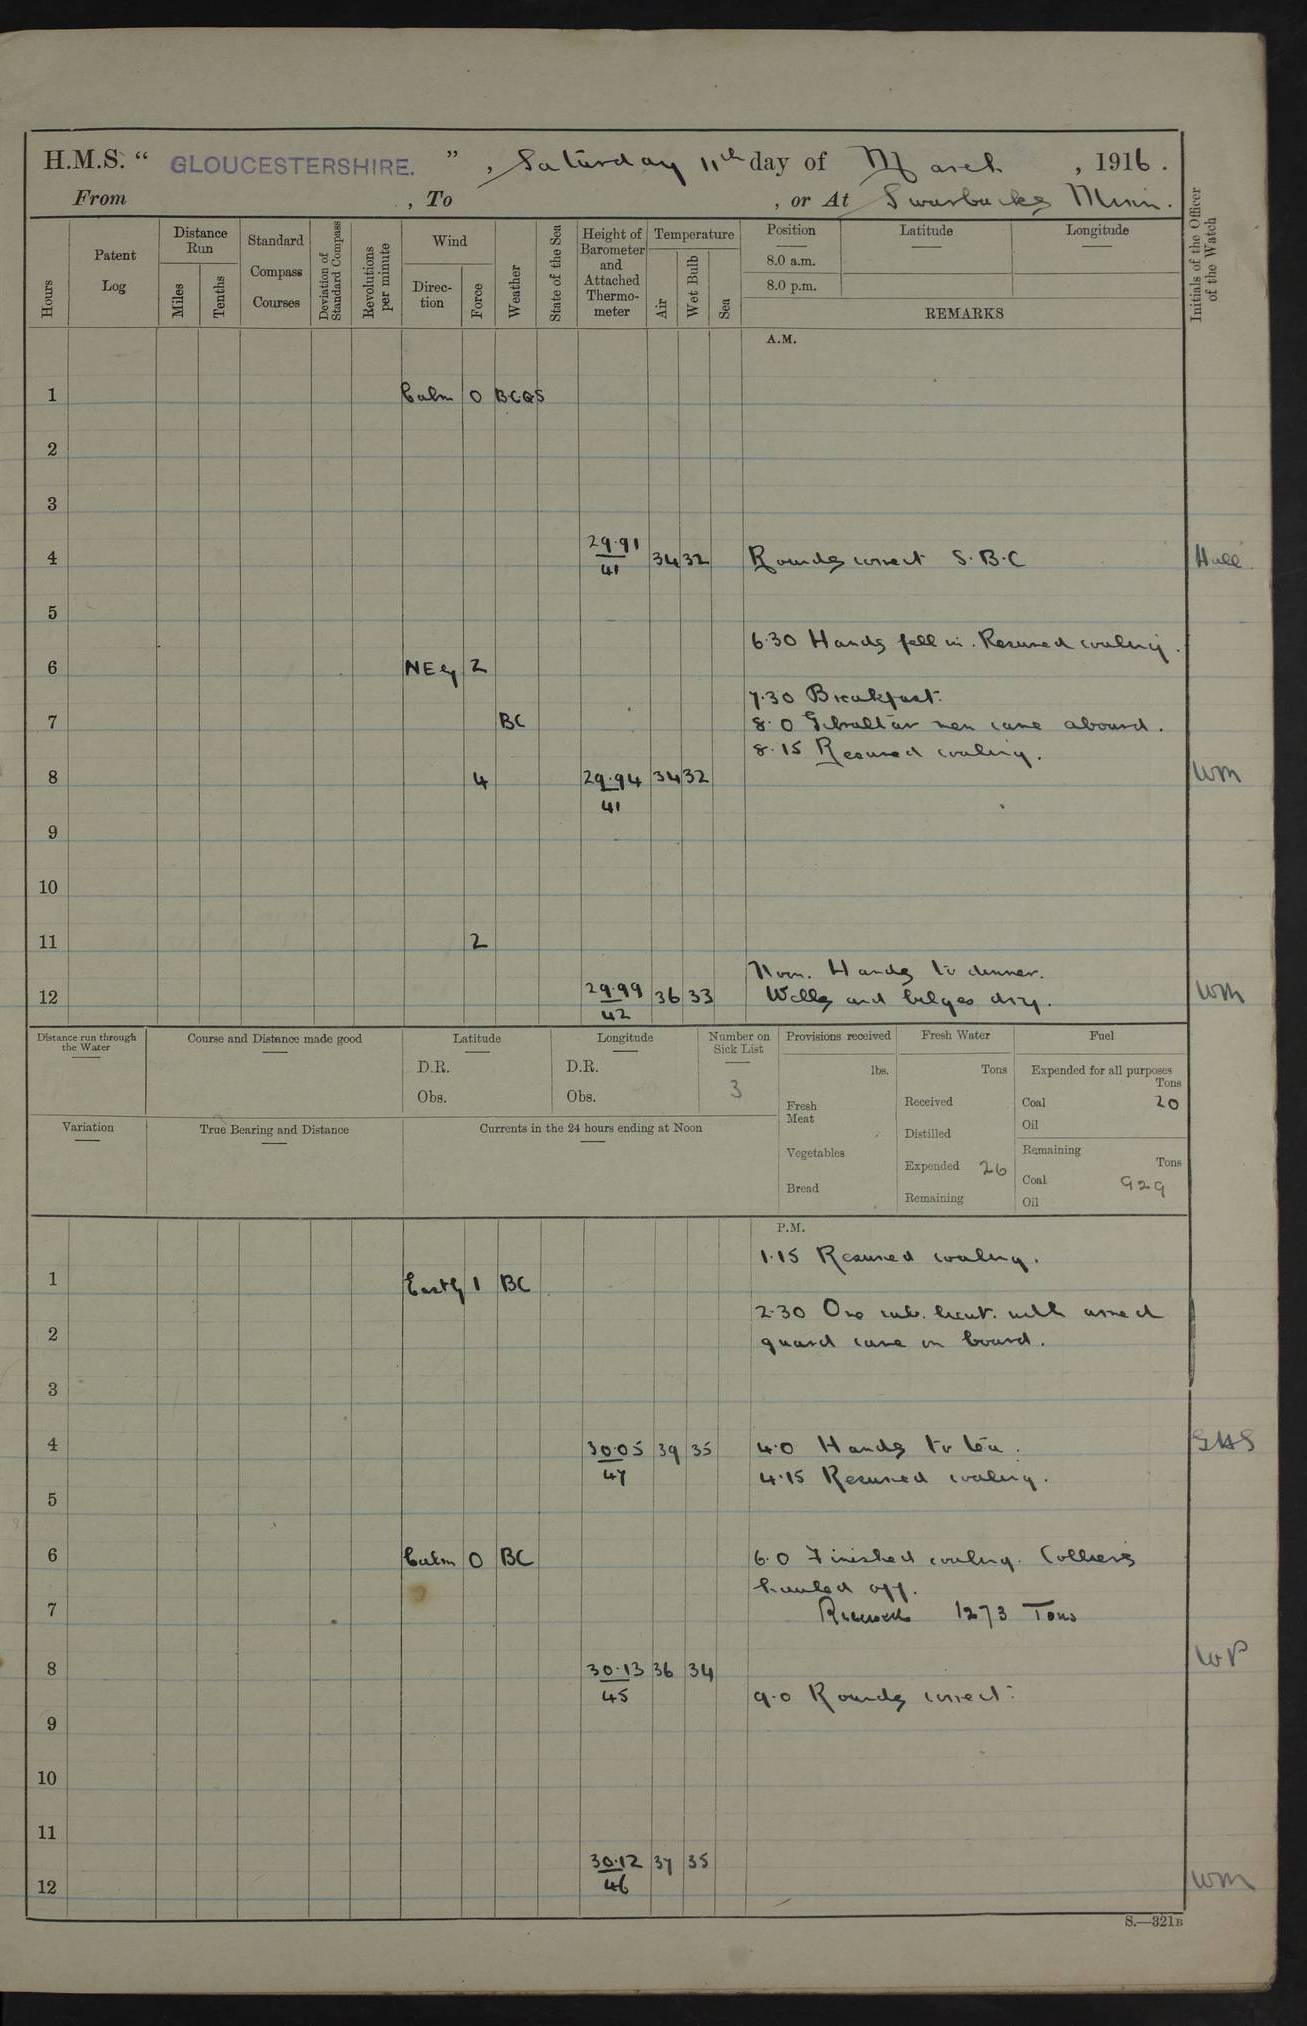 H.M.S. “ GLOUCESTERSHIRE. ” , Saturday 11th day of March , 1916.
From , To , or At Swarbacks Minn.
Hours
Patent Log
Distance Run
Miles
Tenths
Standard Compass Courses
Deviation of Standard Compass
Revolutions per minute
Wind
Direc-tion
Force
Weather
State of the Sea
Height of Barometer and Attached Thermo-meter
Temperature
Air
Wet Bulb
Sea
Position
8.0 a.m.
8.0 p.m.
Latitude
Longitude
REMARKS
Initials of the Officer of the Watch
A.M.
1 Calm 0 BCQS
2
3
4 29.91 34 32 Rounds correct S.B.C Hall
41
5
6.30 Hands fell in. Resumed coaling.
6 NEly 2
7.30 Breakfast.
7 BC 8.0 Gibraltar men came aboard.
8.15 Resumed coaling.
8 4 29.94 34 32 WM
41
9
10
11 2
Noon. Hands to dinner.
12 29.99 36 33 Wells and bilges dry. WM
42
Distance run through the Water
Course and Distance made good
Latitude
D.R.
Obs.
Longitude
D.R.
Obs.
Number on Sick List
3
Provisions received
lbs.
Fresh Meat
Vegetables
Bread
Fresh Water
Tons
Received
Distilled
Expended 26
Remaining
Fuel
Expended for all purposes
Tons
Coal 20
Oil
Remaining
Tons
Coal 929
Oil
Variation
True Bearing and Distance
Currents in the 24 hours ending at Noon
P.M.
1.15 Resumed coaling.
1 Eastly 1 BC
2.30 One sub. lieut. with armed
2 guard came on board.
3
4 30.05 39 35 4.0 Hands to tea.
47 4.15 Resumed coaling.
5
6 Calm 0 BC 6.0 Finished coaling. Colliers
hauled off.
7 Received 1273 Tons
8 30.13 36 34 WP
45 9.0 Rounds correct.
9
10
11
30.12 37 35
12 46 WM
S.—321B